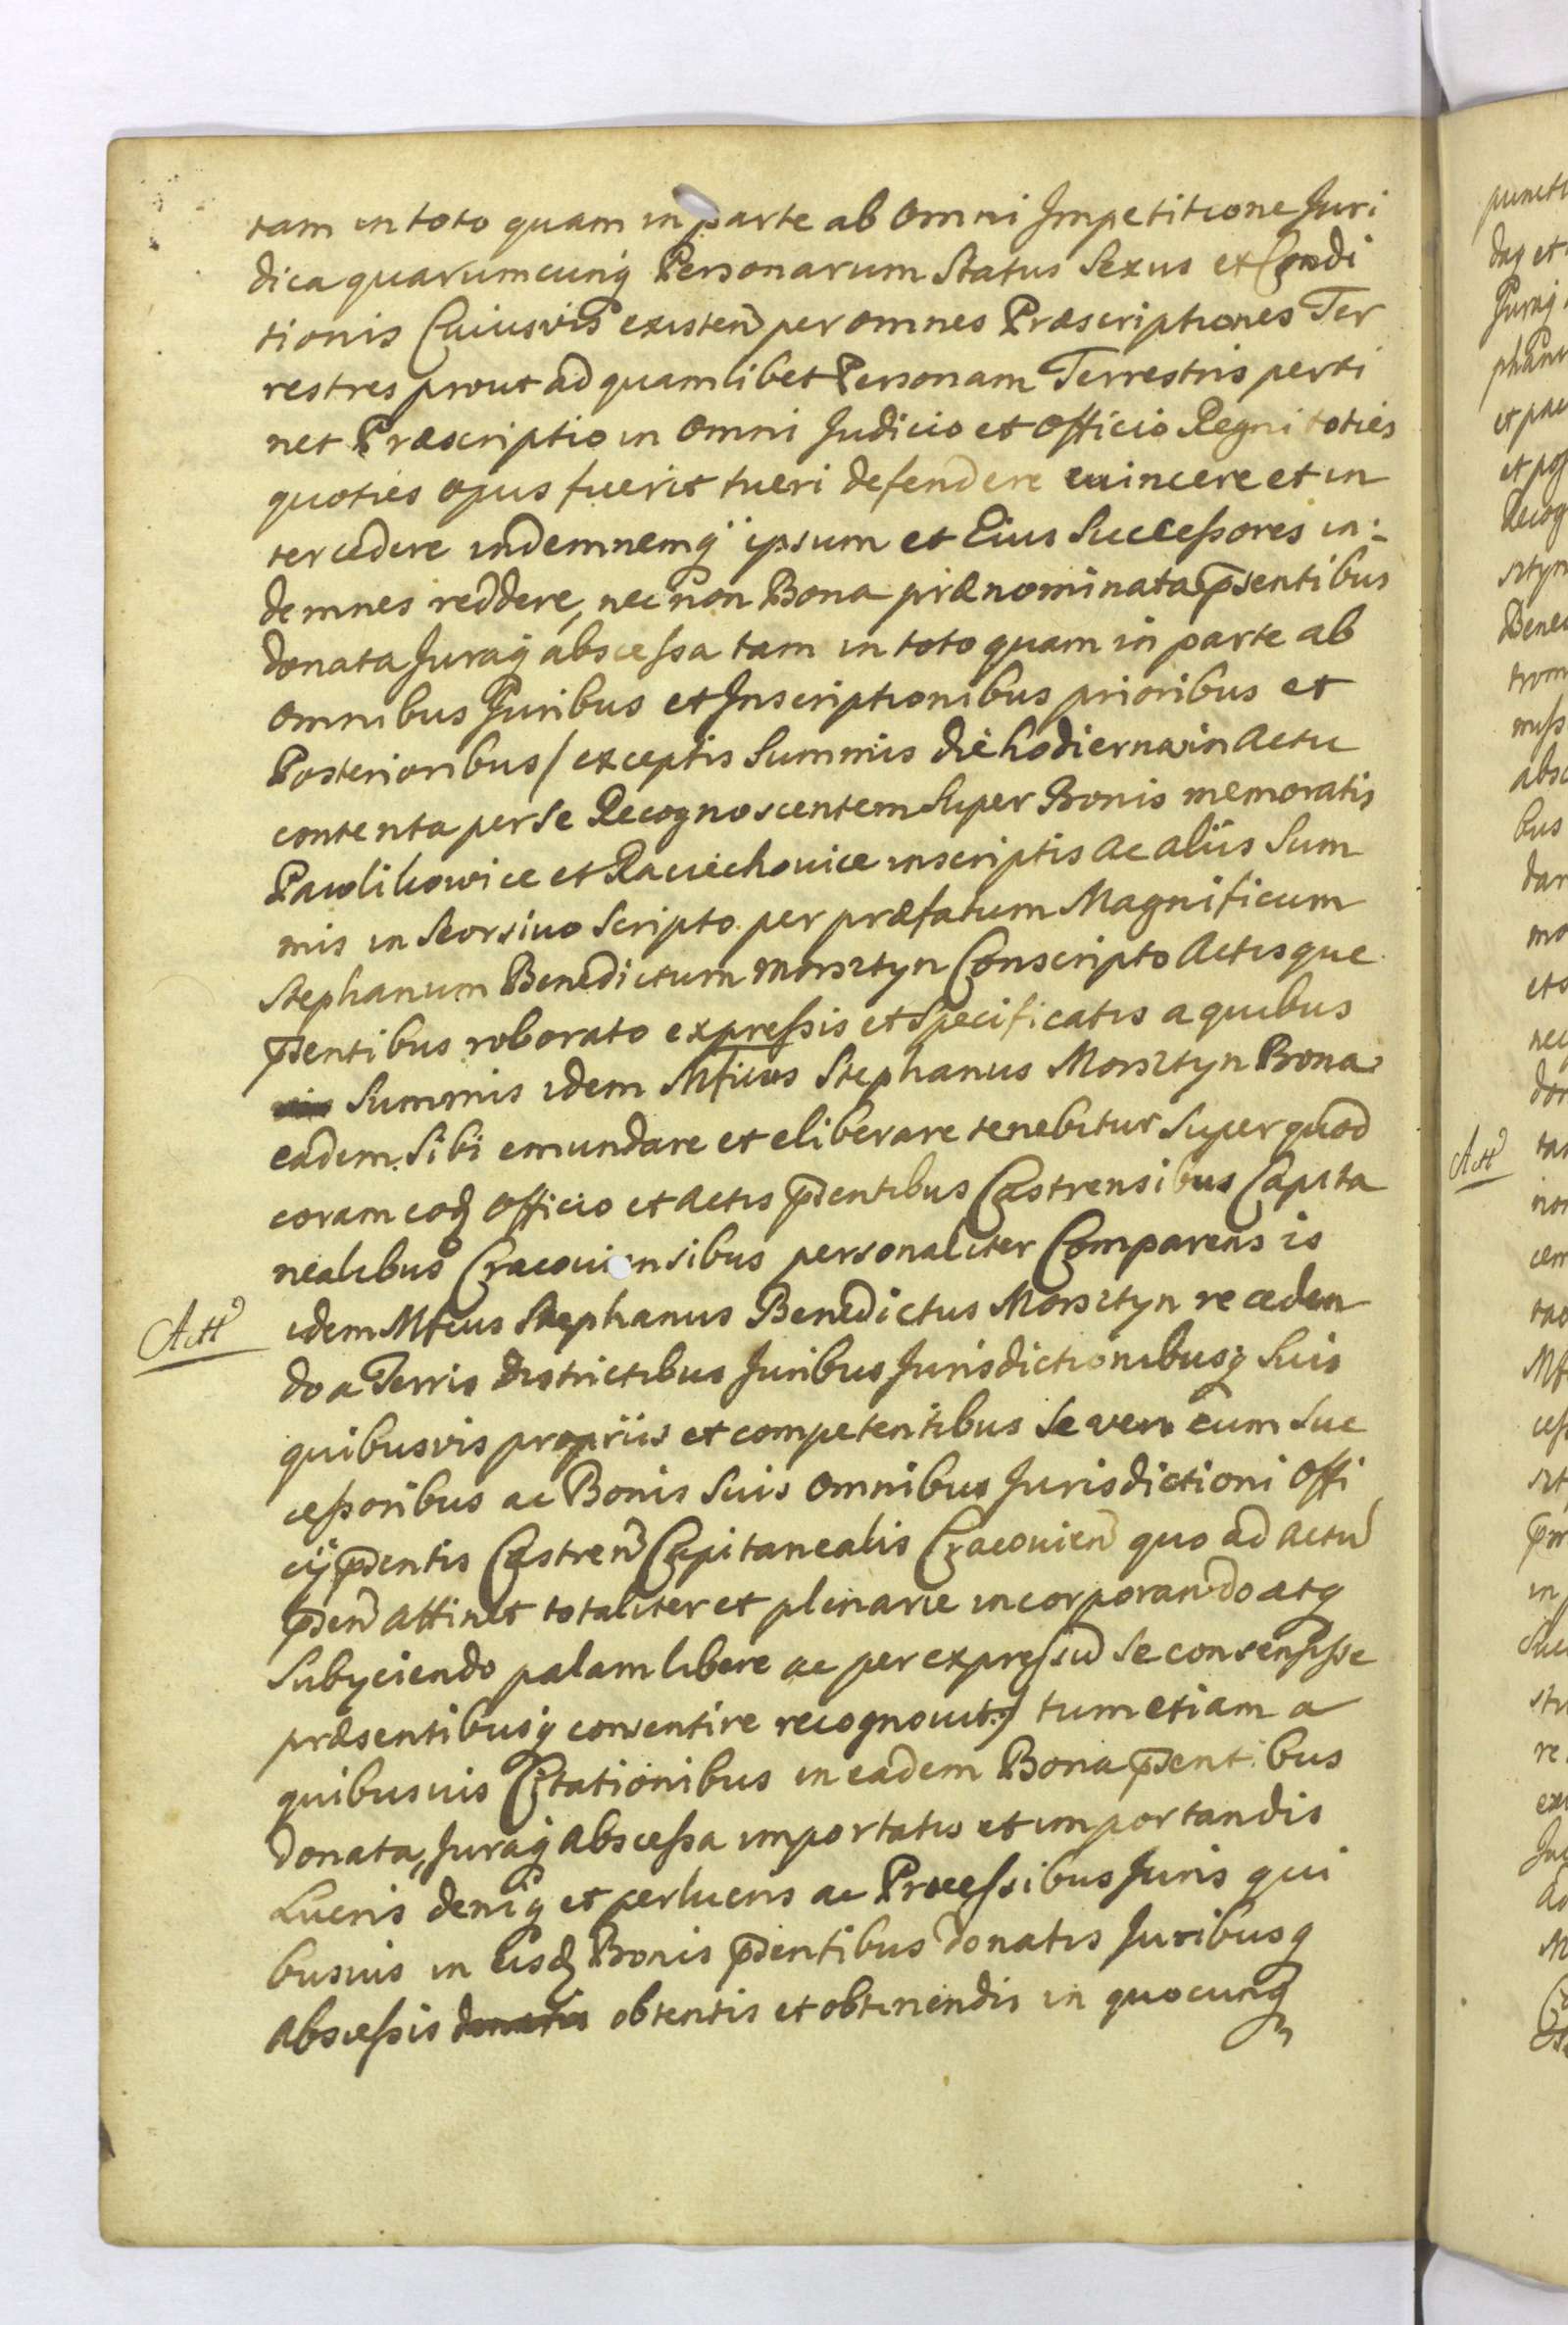 tam in toto quam in parte ab omni Impetitione Juri
dica quarumcunq́ Personarum Status Sexus et Condi
tionis Cuiusvis existen̄ per omnes Præscriptiones Ter
restres prout ad quamlibet Personam Terrestris perti
net Præscriptio in omni Judicio et officio Regni toties
quoties opus fuerit tueri defendere euincere et in
tercedere indemnemq́ ipsum et Eius Succeſsores in:
demnes reddere, nec non Bona prænominata p̄sentibus
donata Juraq́ absceſsa tam in toto quam in parte ab
omnibus Juribus et Inscriptionibus prioribus et
Posterioribus / exceptis Summis die hodierna in Actu
contenta per se Recognoscentem Super Bonis memoratis
Pawlikowice et Raciechouice inscriptis ac aliis Sum
mis in Seorsiuo Scripto per præfatum Magnificum
Stephanum Benedictum Morsztyn Conscripto Actisque
p̄sentibus roborato expreſsis et Specificatis a quibus
Summis idem Mficus Stephanus Morsztyn Bona
eadem Sibi emundare et eliberare tenebitur Super quod
coram eoq̨ officio et Actis p̄sentibus Castrensibus Capita
nealibus Cracouiensibus personaliter Comparens is
Att
idem Mficus Stephanus Benedictus Morsztyn receden
do a Terris Districtibus Juribus Jurisdictionibusq́ Suis
quibusvis propriis et competentibus Se vero cum Suc
ceſsoribus ac Bonis Suis omnibus Jurisdictioni Offi
cÿ p̄sentis Castren̄ Capitanealis Cracouien̄ quo ad Actū
p̄sen̄ attinet totaliter et plenarie incorporando atq
Subyciendo palam libere ac per expreſsū Se consensiſse
præsentibusq́ consentire recognouit) tum etiam a
quibusuis Citationibus in eadem Bona p̄sentibus
donata, Juraq́ Absceſsa importatis et importandis
Lucris deniq́ et perlucris ac Proceſsibus Juris qui
busuis in Eisq̨ Bonis p̄sentibus donatis Juribusq
Absceſsis donatis obtentis et obtinendis in quocunq́